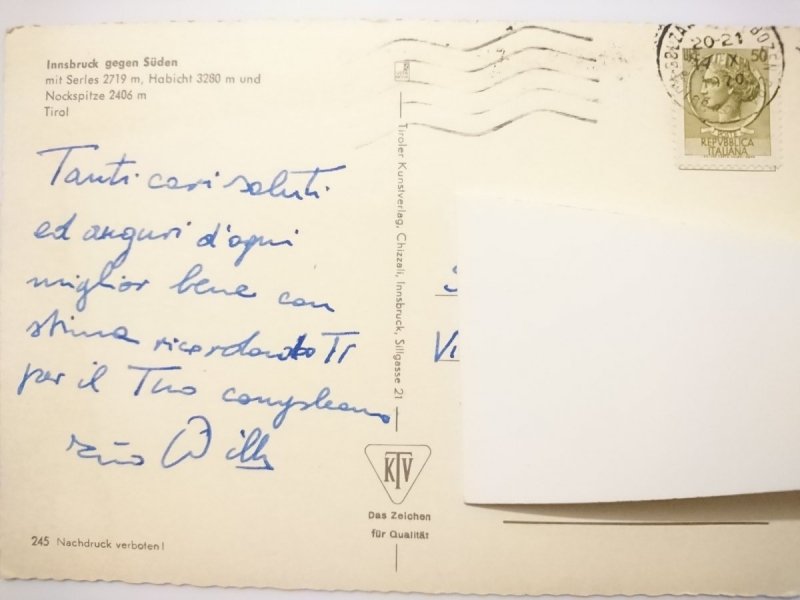 Innsbruck gegen Süden
mit Serles 2719 m, Habicht 3280 m und
Nockspitze 2406 m
Tirol
Tanti cari saluti
ed auguri d'ogni
miglior bene con
stima ricordando Ti
per il Tuo compleanno
Willy
245 Nachdruck verboten!
Tiroler Kunstverlag, Chizzali, Innsbruck, Sillgasse 21
KTV
Das Zeichen
für Qualität
BOZEN
20-21
50
REPVBBLICA
ITALIANA